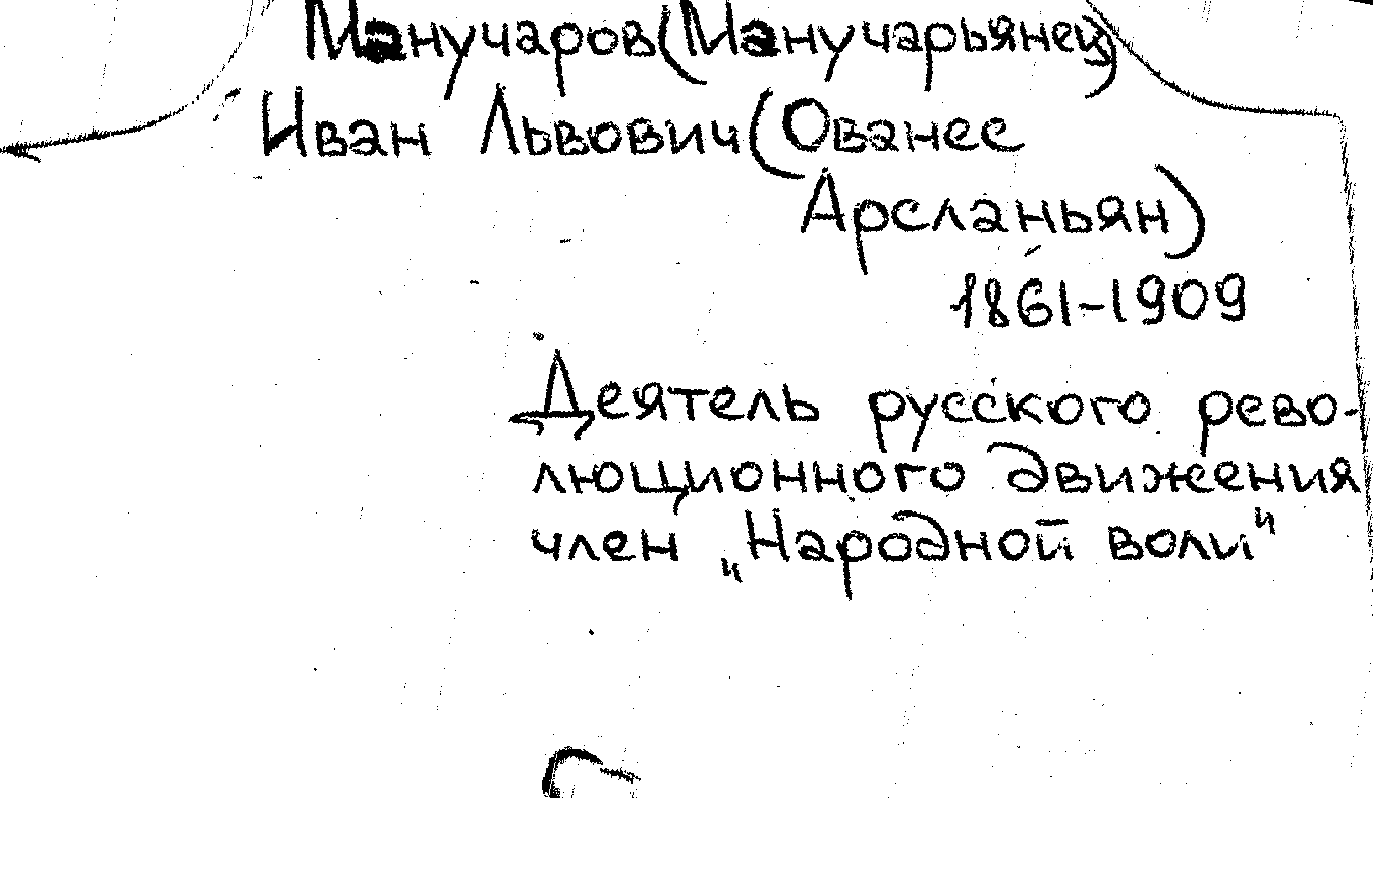 Манучаров (Манучарьянец)
Иван Львович (Ованес
Арсланьян)
1861-1909
Деятель русского рево-
люционного движения
член „Народной воли"